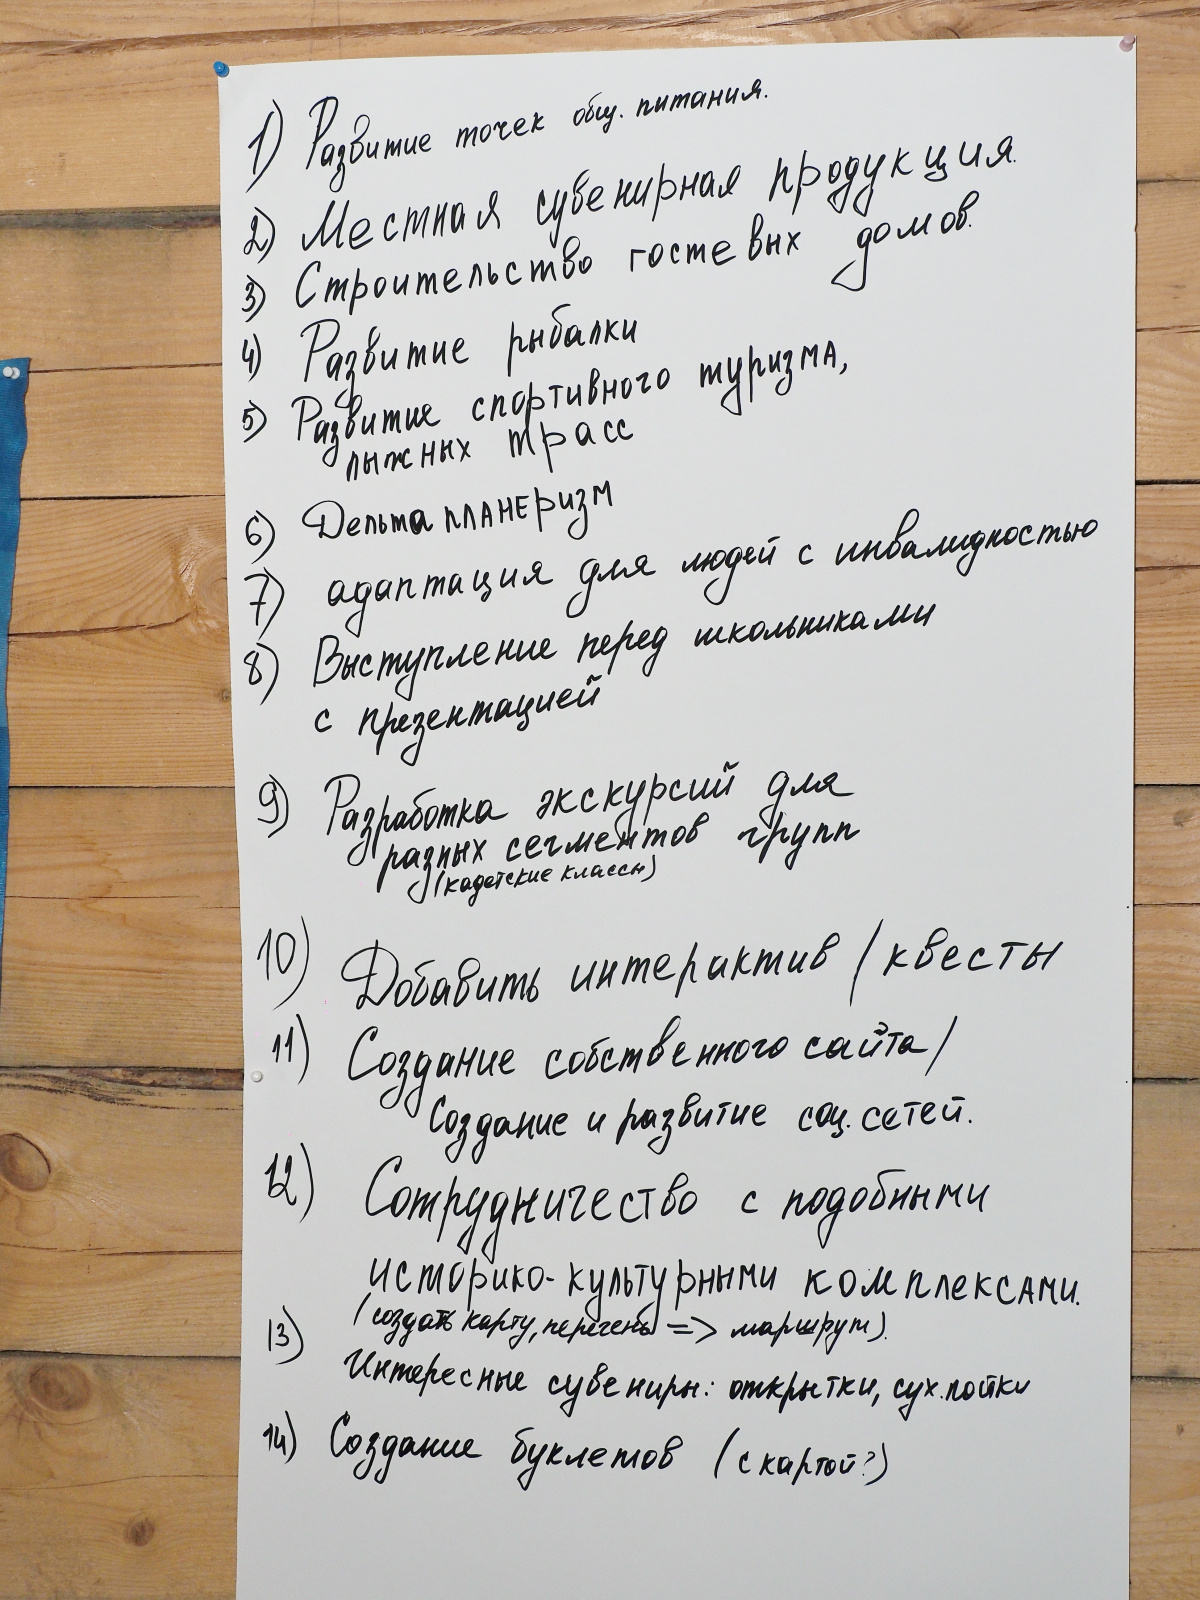 1) Развитие точек общ. питания.
2) Местная сувенирная продукция.
3) Строительство гостевых домов.
4) Развитие рыбалки
5) Развитие спортивного туризма,
лыжных трасс
6) Дельтапланеризм
7) адаптация для людей с инвалидностью
8) Выступление перед школьниками
с презентацией
9) Разработка экскурсий для
разных сегментов групп
(кадетские классы)
10) Добавить интерактив / квесты
11) Создание собственного сайта /
Создание и развитие соц. сетей.
12) Сотрудничество с подобными
историко-культурными комплексами.
(создать карту, перечень => маршрут).
13) Интересные сувениры: открытки, сух. пайки
14) Создание буклетов (с картой?)